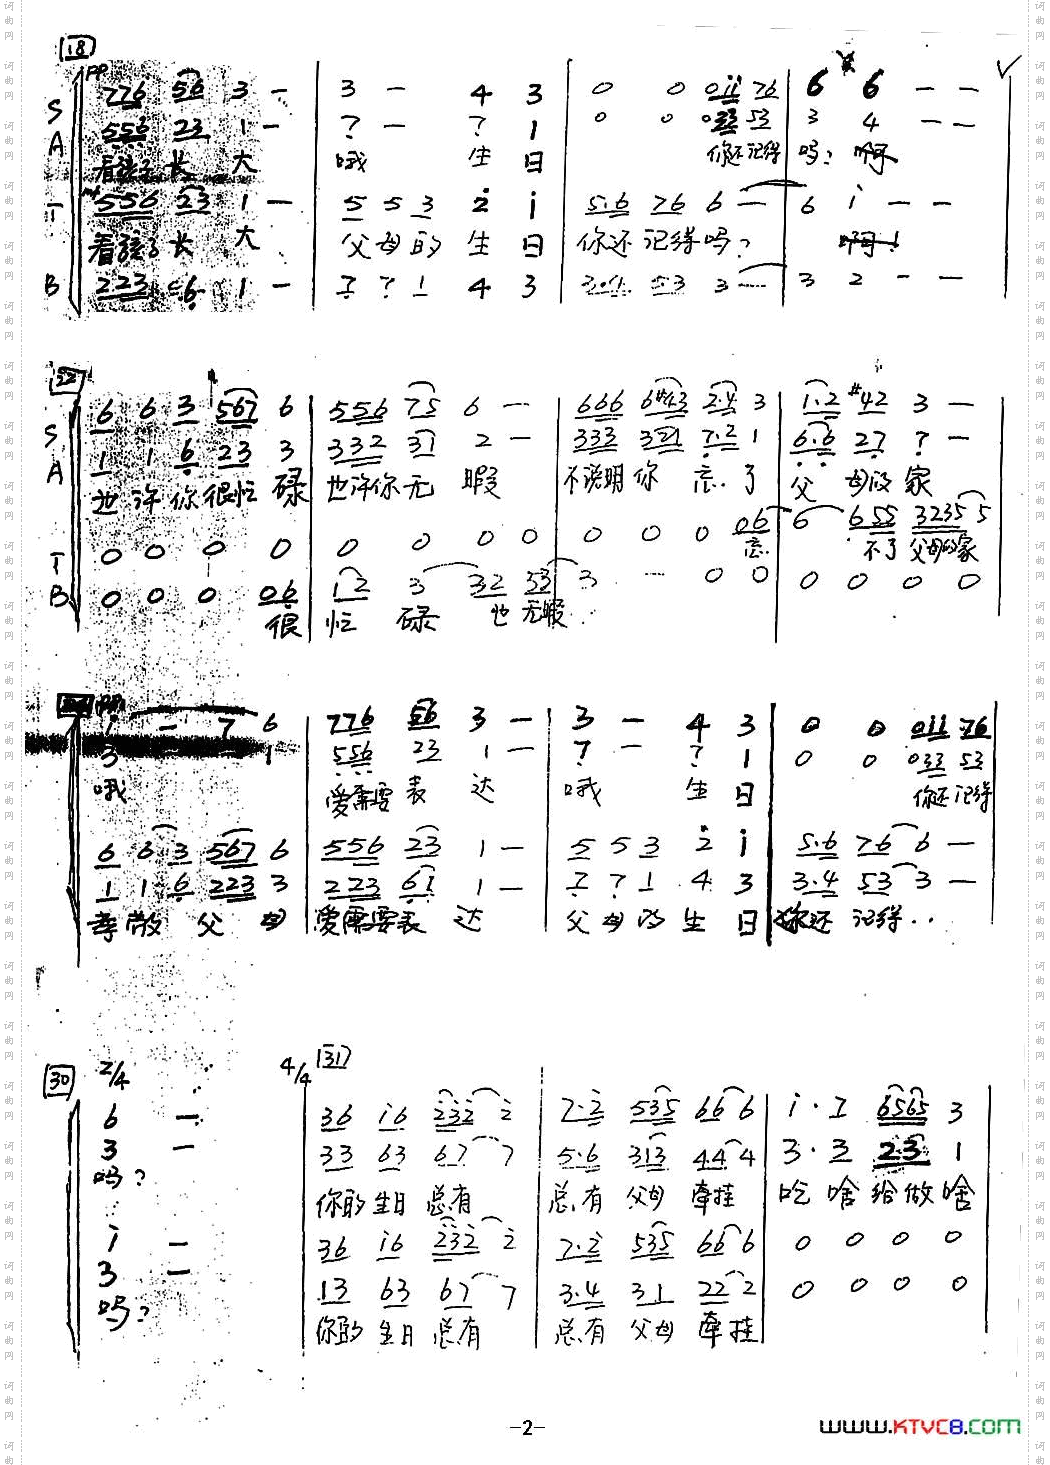 18
PP
S 776 56 3 - | 3 - 4 3 | 0 0 011 76 | 6 6 - -
A 556 23 1 - | 7 - 7 1 | 0 0 033 53 | 3 4 - -
看孩子长大 哦 生日 你还记得吗? 啊
T 556 23 1 - | 5 5 3 2 1 | 5·6 76 6 - | 6 1 - -
看孩子长大 父母的生日 你还记得吗?
B 223 6 1 - | 7 7 1 4 3 | 3·4 53 3 - | 3 2 - -
22
S 6 6 3 567 6 | 556 75 6 - | 666 6#43 2·4 3 | 1·2 #42 3 -
A 1 1 6 23 3 | 332 31 2 - | 333 321 7·2 1 | 6·6 27 7 -
也许你很忙碌 也许你无暇 不说明你忘了 父母的家
T 0 0 0 0 | 0 0 0 0 | 0 0 0 06 | 6 655 3235 5
忘 不了父母的家
B 0 0 0 06 | 12 3 32 53 | 3 - 0 0 | 0 0 0 0
很 忙碌 也无暇
1 - 7 6 | 776 56 3 - | 3 - 4 3 | 0 0 011 76
3 1 | 556 23 1 - | 7 - 7 1 | 0 0 033 53
哦 爱需要表达 哦 生日 你还记得
6 6 3 567 6 | 556 23 1 - | 5 5 3 2 1 | 5·6 76 6 -
1 1 6 223 3 | 223 61 1 - | 7 7 1 4 3 | 3·4 53 3 -
孝敬父母 爱需要表达 父母的生日 你还记得··
30 2/4 4/4 31
6 - | 36 16 232 2 | 7·2 535 66 6 | 1·7 6565 3
3 - | 33 63 67 7 | 5·6 313 44 4 | 3·3 23 1
吗? 你的生日总有 总有父母牵挂 吃啥给做啥
1 - | 36 16 232 2 | 7·2 535 66 6 | 0 0 0 0
3 - | 13 63 67 7 | 3·4 31 22 2 | 0 0 0 0
吗? 你的生日总有 总有父母牵挂
-2-
www.KTVC8.com